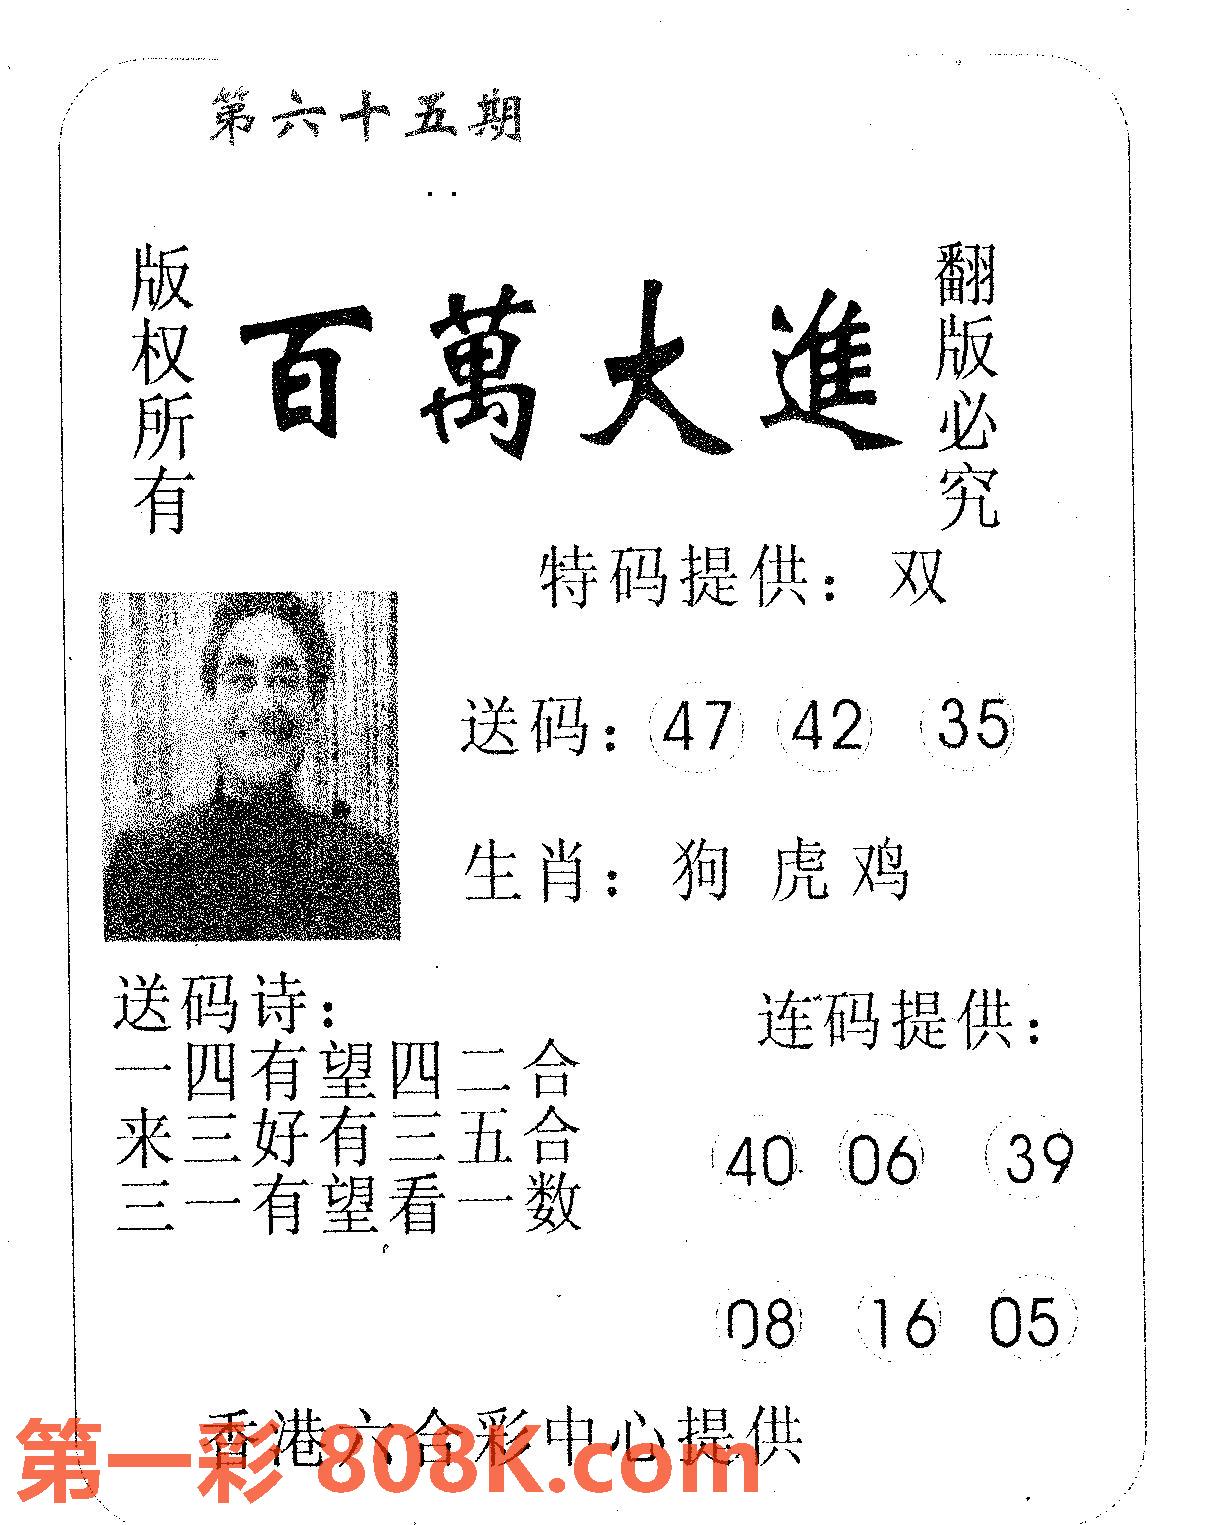 第六十五期
版权所有
百萬大進
翻版必究
特码提供：双
送码：47 42 35
生肖：狗 虎 鸡
送码诗：
一四有望四二合
来三好有三五合
三一有望看一数
连码提供：
40 06 39
08 16 05
香港六合彩中心提供
第一彩 808K.com